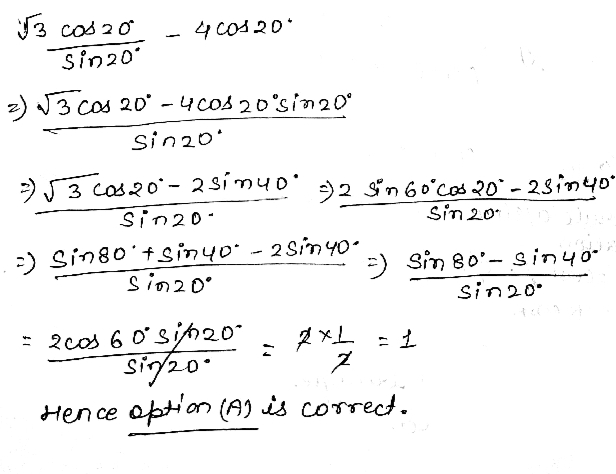 √3 cos20° / sin20° - 4cos20°
⇒) √3 cos 20° - 4cos20°sin20° / sin20°
⇒) √3 cos20° - 2sin40° / sin20° ⇒) 2 sin60°cos20° - 2sin40° / sin20°
⇒) sin80° + sin40° - 2sin40° / sin20° ⇒) sin80° - sin40° / sin20°
= 2cos60°sin20° / sin20° = 2×1/2 = 1
Hence option (A) is correct.